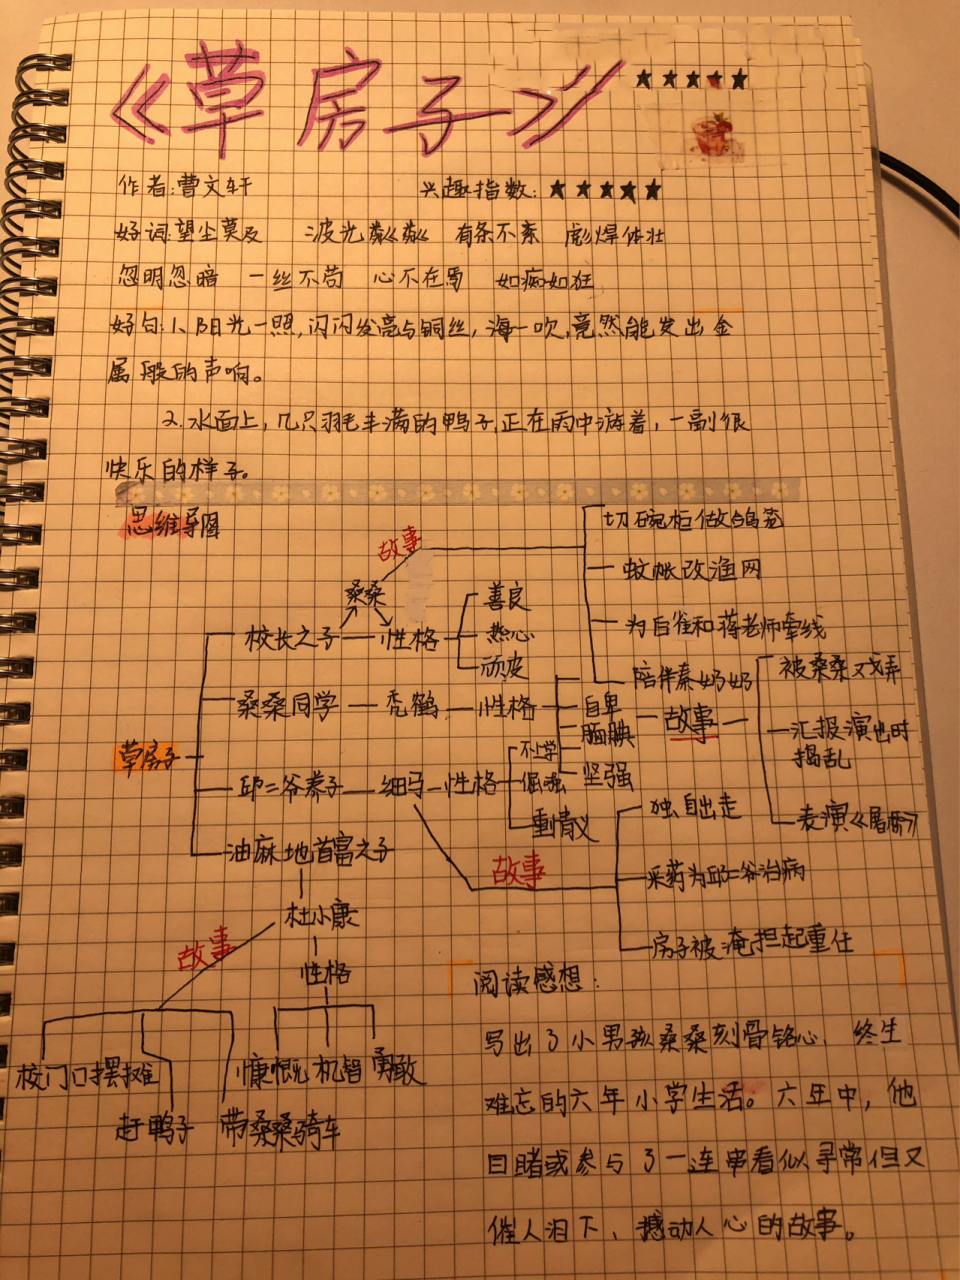 《草房子》 ★★★★★
作者:曹文轩 兴趣指数:★★★★★
好词:望尘莫及 波光粼粼 有条不紊 彪焊体壮
忽明忽暗 一丝不苟 心不在焉 如痴如狂
好句:1、阳光一照,闪闪发亮与铜丝,海一吹,竟然能发出金
属般的声响。
2.水面上,几只羽毛丰满的鸭子,正在雨中游着,一副很
快乐的样子。
思维导图
故事
切碗柜做鸽笼
蚊帐改渔网
为白雀和蒋老师牵线
陪伴秦奶奶
桑桑
校长之子 性格
善良
热心
顽皮
草房子
桑桑同学 秃鹤 性格
自卑
腼腆
坚强
故事
被桑桑戏弄
汇报演出时
捣乱
表演《屠桥》
邱二爷养子 细马 性格
不上学
倔强
重情义
故事
独自出走
采药为邱二爷治病
房子被淹担起重任
油麻地首富之子
杜小康
故事
性格
校门口摆摊
赶鸭子
带桑桑骑车
慷慨 机智 勇敢
阅读感想:
写出了小男孩桑桑刻骨铭心、终生
难忘的六年小学生活。六年中,他
目睹或参与了一连串看似寻常但又
催人泪下、撼动人心的故事。